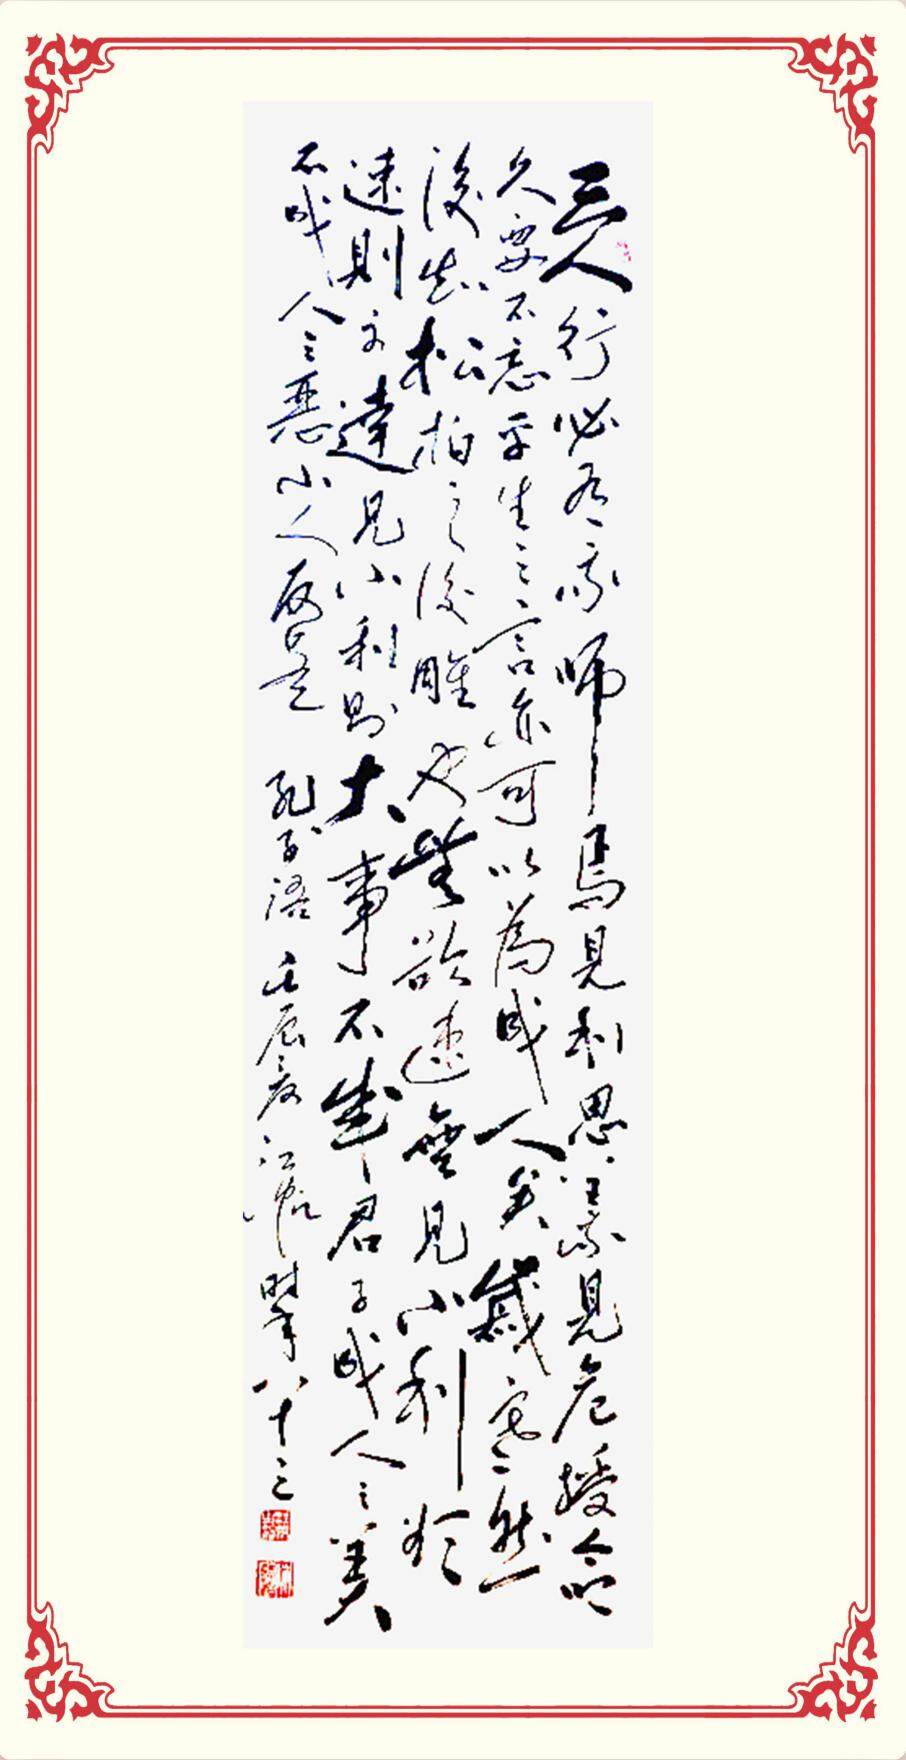 三人行必有我师焉見利思義見危授命
久要不忘平生之言亦可以為成人矣歲寒然
後知松柏之後雕也無欲速無見小利欲
速則不達見小利則大事不成君子成人之美
不成人之惡小人反是 孔子語 壬辰夏 江 时年八十三